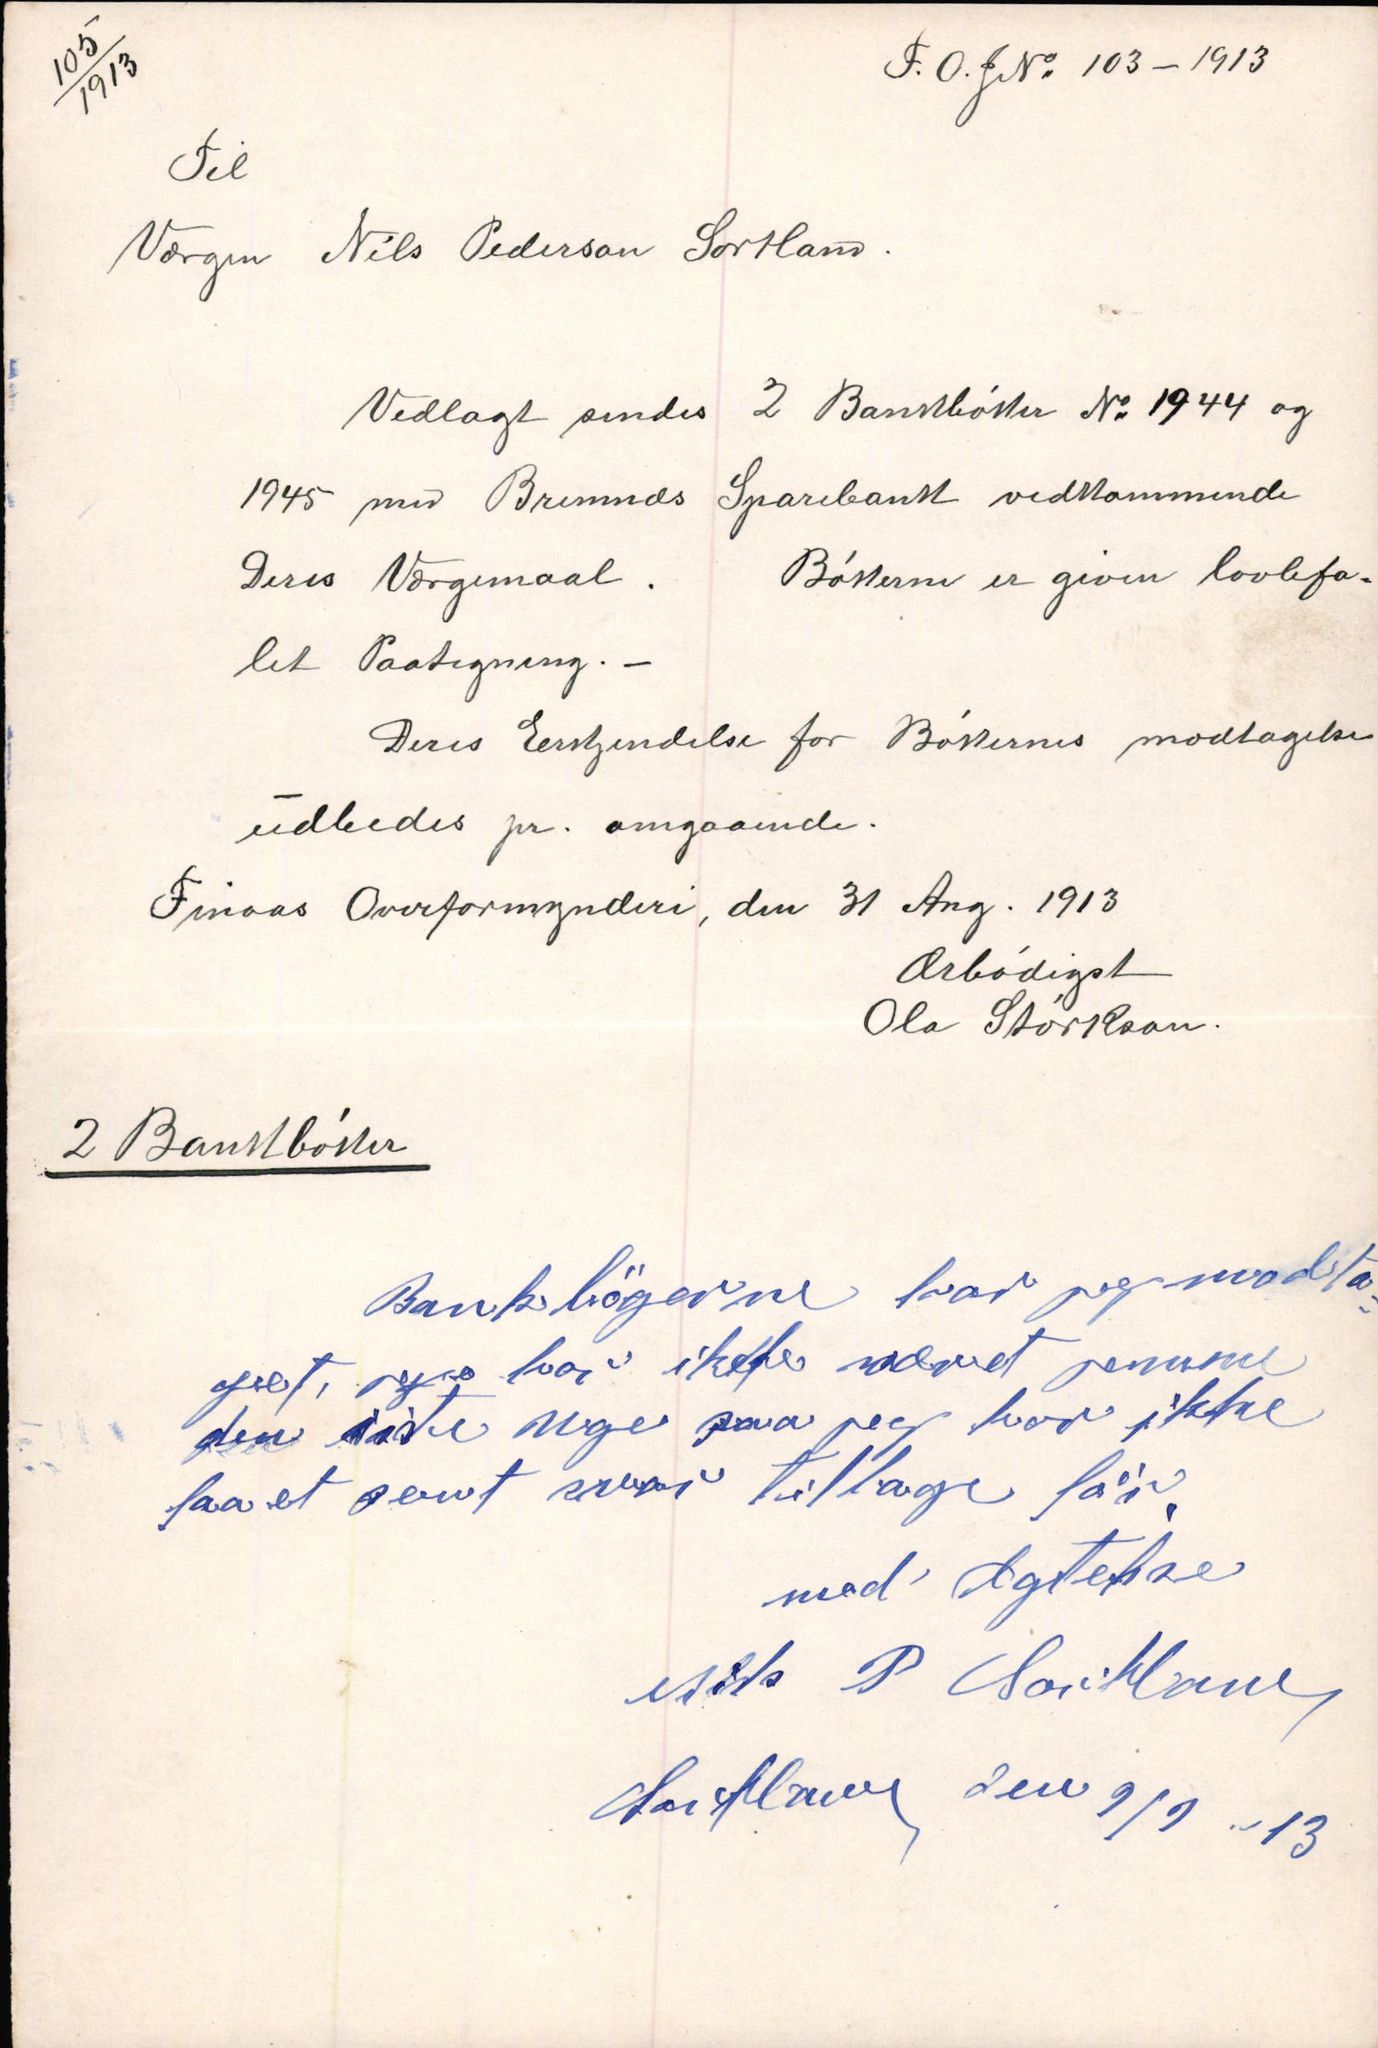 105
1913
F. O. J No. 103 – 1913
Til
Værgen Nils Pederson Sortland.
Vedlagt sendes 2 Bankbøker No. 1944 og
1945 med Bremnæs Sparebank vedkommende
Deres Værgemaal. Bøkerne er given lovbefa-
let Paategning. –
Deres Erkjendelse for Bøkernes modtagelse
udbedes pr. omgaaende.
Finaas Overformynderi, den 31 Aug. 1913
Ærbødigst
Ola Störkson.
2 Bankbøker
Bankbögerne har jeg modta-
get, jeg har ikke været jemme
den siste Uge saa jeg har ikke
faaet sent svar tilbage för.
med Agtelse
Nils P Sortland
Sortland den 9/9 - 13